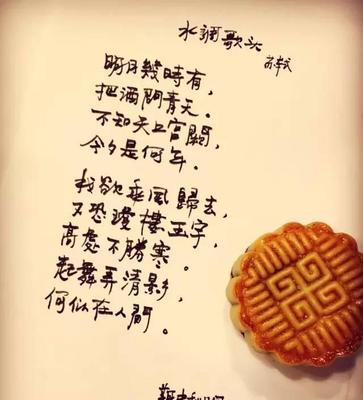 水調歌头
苏轼
明月幾時有，
把酒問青天。
不知天上宮闕，
今夕是何年。
我欲乘風歸去，
又恐瓊樓玉宇，
高處不勝寒。
起舞弄清影，
何似在人間。